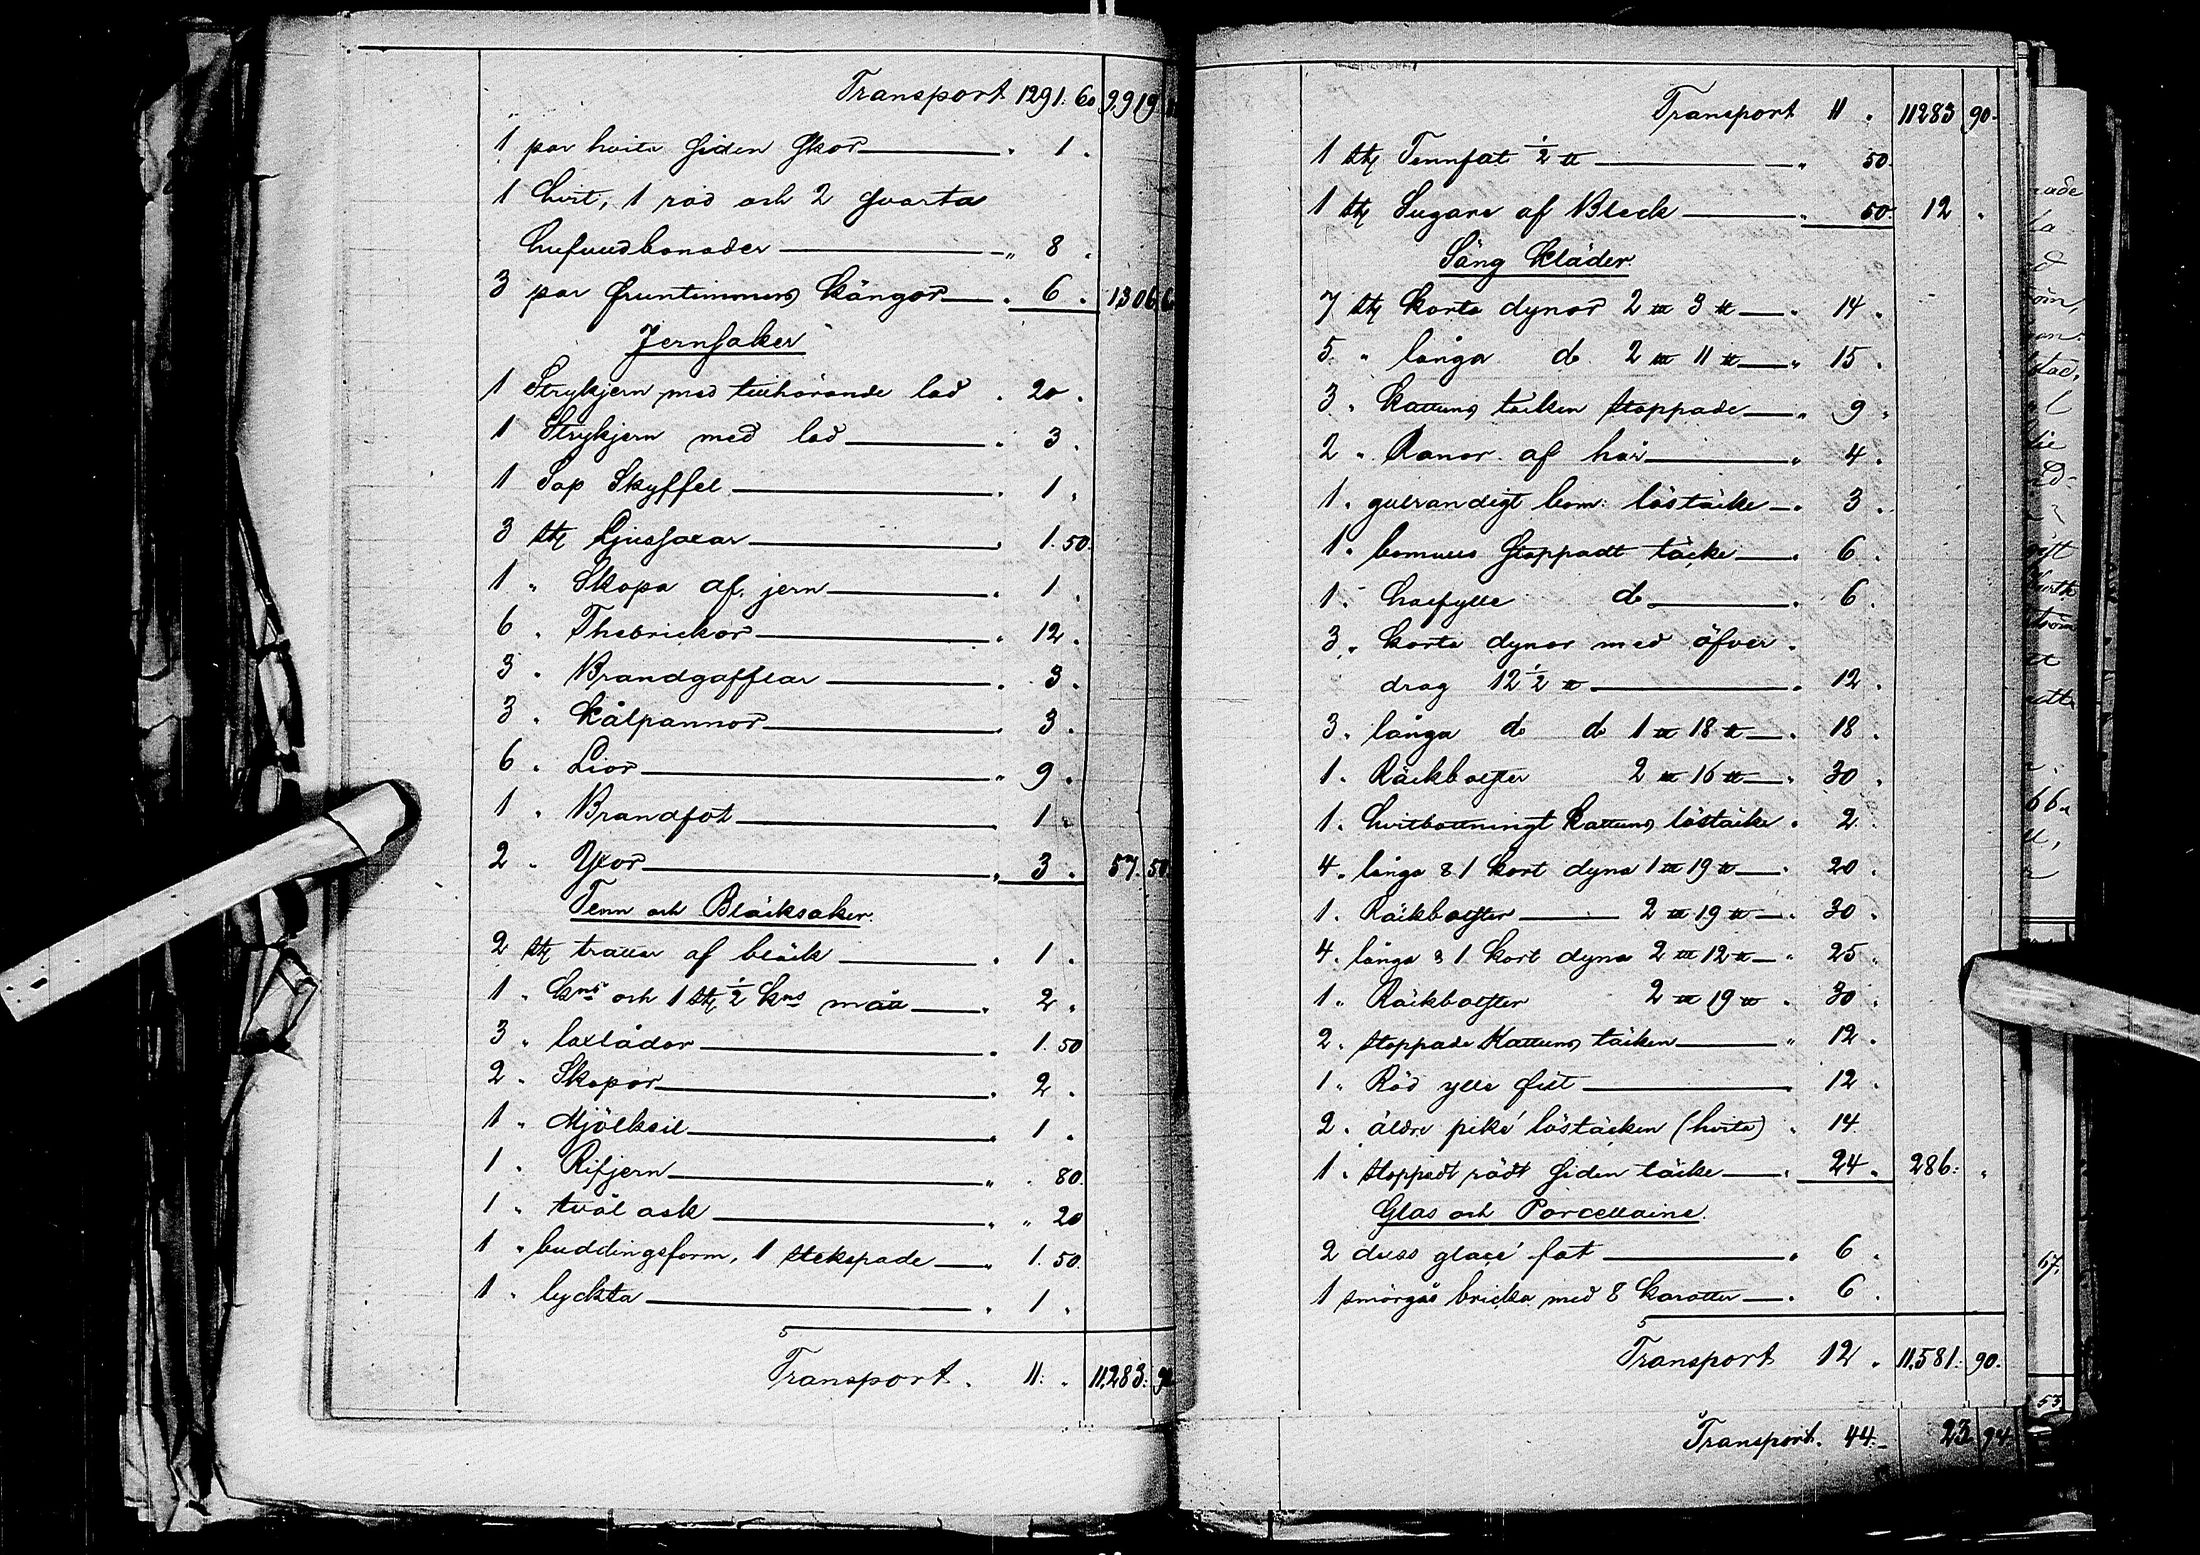 Transport 1291. 60 9919
1 par hvita siden skor — " 1 "
1 hvit, 1 röd och 2 svarta
hufvudbonader — " 8 "
3 par fruntimmers kängor — " 6 " 1306. 6
Jernsaker
1 Strykjern med tillhörande lod " 20 "
1 Strykjern med lod — " 3 "
1 Sop Skyffel — " 1 "
3 stk Ljussaxar — " 1. 50
1 " Skopa af jern — " 1 "
6 " Thebrickor — " 12 "
3 " Brandgafflar — " 3 "
3 " Kålpannor — " 3 "
6 " Lior — " 9 "
1 " Brandfot — " 1 "
2 " Yxor — " 3 " 57. 50
Tenn och Bläcksaker
2 stk trattar af bläck — " 1 "
1 " kns och 1 stk 1/2 kns mått — " 2 "
3 " laxlådor — " 1. 50
2 " Skopor — " 2 "
1 " Mjölksil — " 1 "
1 " Rifjern — " " 80
1 " tvål ask — " " 20
1 " buddingsform, 1 stekspade — " 1. 50
1 " lyckta — " 1 "
Transport " 11: " 11,283: 90
Transport 11 " 11283 90
1 stk Tennfat 1/2 ℔ — " 50
1 stk Sugare af Bleck — " 50 12 "
Säng Kläder
7 stk korta dynor 2 ℔ 3 ℔ — " 14 "
5 " långa do 2 ℔ 11 ℔ — " 15 "
3 " Kattuns täcken stoppade — " 9 "
2 " Ranor af hår — " 4 "
1 " gulrandigt bom: löstäcke — " 3 "
1 " bomulls stoppadt täcke — " 6 "
1 " halfylle do — " 6 "
3 " korta dynor med öfver-
drag 12 1/2 ℔ — " 12 "
3 " långa do do 1 ℔ 18 ℔ — " 18 "
1 " Räckbolster 2 ℔ 16 ℔ — " 30 "
1 " hvitbottningt Kattuns löstäcke " 2 "
4 " långa & 1 kort dyna 1 ℔ 19 ℔ — " 20 "
1 " Räckbolster — 2 ℔ 19 ℔ — " 30 "
4 " långa & 1 kort dyna 2 ℔ 12 ℔ — " 25 "
1 " Räckbolster 2 ℔ 19 ℔ " 30 "
2 " stoppade Kattuns täcken — " 12 "
1 " Röd ylle filt — 12 "
2 " äldre piké löstäcken (hvita) " 14
1 " stoppadt rödt siden täcke — " 24 " 286: "
Glas och Porcellaine
2 duss glacé fat — " 6 "
1 smörgås bricka med 8 karotter — " 6 "
Transport 12 " 11,581: 90
Transport. 44. 23 94